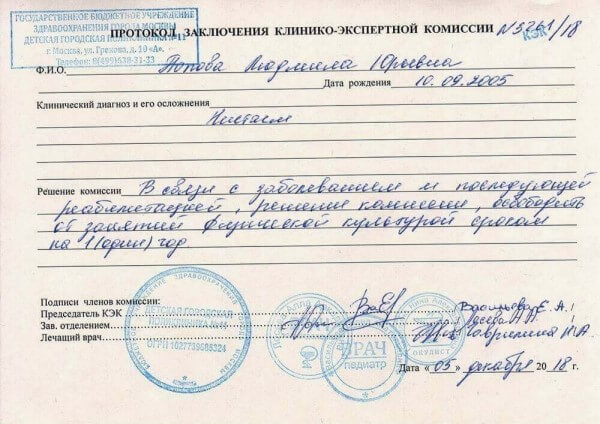 ГОСУДАРСТВЕННОЕ БЮДЖЕТНОЕ УЧРЕЖДЕНИЕ
ЗДРАВООХРАНЕНИЯ ГОРОДА МОСКВЫ
ДЕТСКАЯ ГОРОДСКАЯ ПОЛИКЛИНИКА
г. Москва, ул. Грекова, д. 10 «А».
Телефон: 8(499)638-31-33
ПРОТОКОЛ ЗАКЛЮЧЕНИЯ КЛИНИКО-ЭКСПЕРТНОЙ КОМИССИИ N3261/18
КЭК
Ф.И.О. Попова Людмила Юрьевна
Дата рождения 10.09.2005
Клинический диагноз и его осложнения
Нистагм
Решение комиссии В связи с заболеванием и последующей
реабилитацией, решение комиссии, освободить
от занятий физической культурой сроком
на 1(один) год
Подписи членов комиссии:
Председатель КЭК Васильева Е.А.
Зав. отделением А.А.
Лечащий врач Гаврилина М.А.
ДЕТСКАЯ ГОРОДСКАЯ
ОГРН
ВРАЧ
педиатр
окулист
Дата «05» декабря 2018 г.